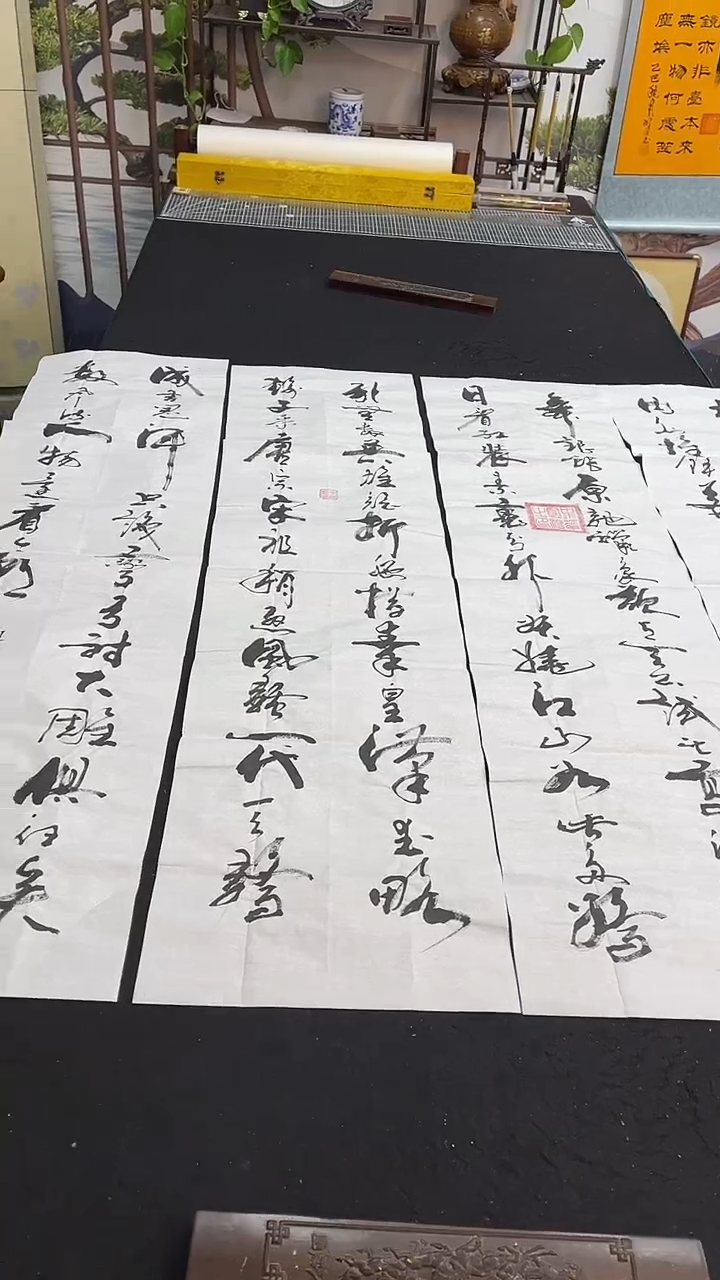 鏡亦非臺本來
無一物何處惹
塵埃
舞銀蛇原馳蠟象欲与天公試比高須
日看紅裝素裹分外妖嬈江山如此多嬌
引無數英雄競折腰惜秦皇漢武略
輸文采唐宗宋祖稍遜風騷一代天驕
成吉思汗只識彎弓射大雕俱往矣
數風流人物還看今朝